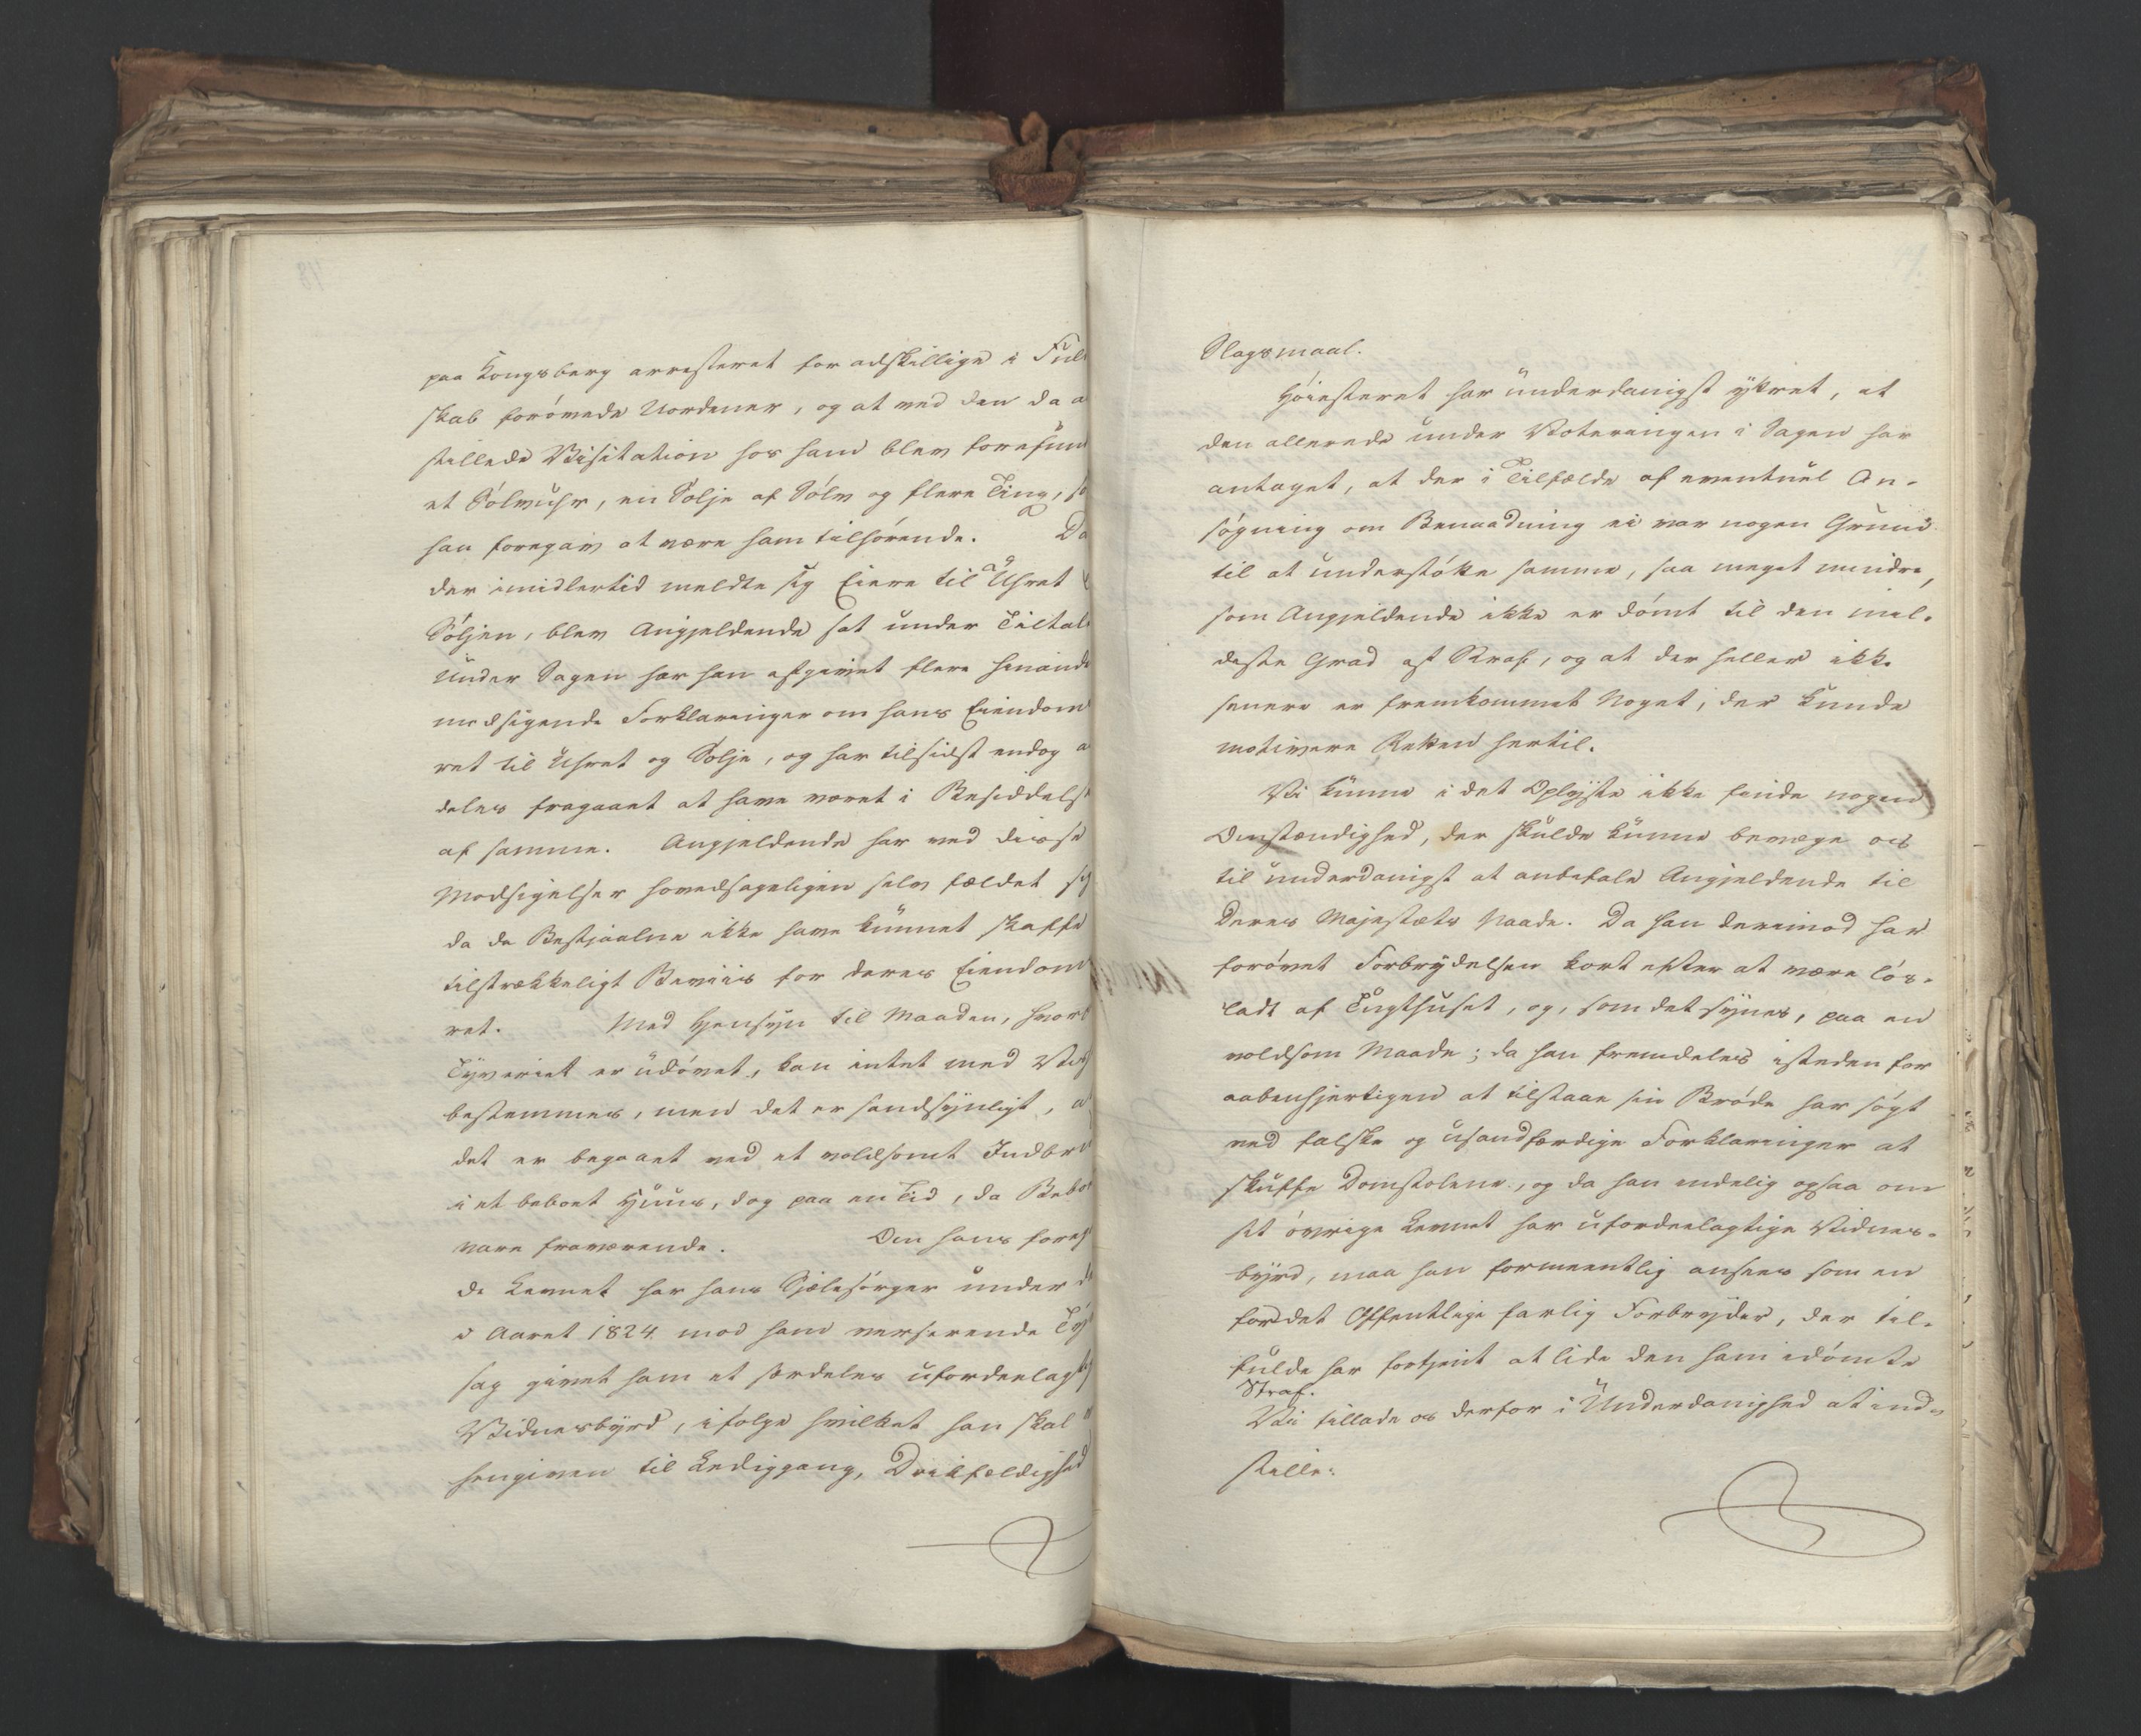 paa Kongsberg arresteret for adskillige i Ful
skab forøvede Uordener, og at ved den da a
stillede Visitation hos ham blev forefun
et Sølvuhr, en Sølje af Sølv og flere Ting, so
han foregav at være ham tilhørende. Da
der imidlertid meldte sig Eiere til Uhret
Søljen, blev Angjeldende sat under Tiltal
Under Sagen har han afgivet flere hinand
modsigende Forklaringer om hans Eiendom
ret til Uhret og Sølje, og har tilsidst endog a
deles fragaaet at have været i Besiddels
af samme. Angjeldende har ved disse
Modsigelser hovedsageligen selv fældet sig
da de Bestjaalne ikke have kunnet skaffe
tilstrækkeligt Beviis for deres Eiendoms
ret. Med Hensyn til Maaden, hvor
Tyveriet er udøvet, kan intet med Vis
bestemmes, men det er sandsynligt, a
det er begaaet ved et voldsomt Indbru
i et beboet Huus, dog paa en Tid, da Bebo
vare fraværende. Om hans foreg
de Levnet har hans Sjælesørger under d
i Aaret 1824 mod ham verserende Ty
sag givet ham et særdeles ufordeelag
Vidnesbyrd, ifølge hvilket han skal
hengiven til Lediggang, Drikfældighed
Slagsmaal.
Høiesteret har underdanigst yttret, at
den allerede under Voteringen i Sagen har
antaget, at der i Tilfælde af eventuel An-
søgning om Benaadning ei var nogen Grund
til at understøtte samme, saa meget mindre,
som Angjeldende ikke er dømt til den mil-
deste Grad af Straf, og at der heller ikke
senere er fremkommet Noget, der kunde
motivere Retten hertil.
Vi kunne i det Oplyste ikke finde nogen
Omstændighed, der skulde kunne bevæge os
til underdanigst at anbefale Angjeldende til
Deres Majestæts Naade. Da han derimod har
forøvet Forbrydelsen kort efter at være løs-
ladt af Tugthuset, og, som det synes, paa en
voldsom Maade; da han fremdeles isteden for
aabenhjertigen at tilstaae sin Brøde har søgt
ved falske og usandfærdige Forklaringer at
skuffe Domstolene, og da han endelig ogsaa om
sit øvrige Levnet har ufordeelagtige Vidnes-
byrd, maa han formeentlig ansees som en
for det Offentlige farlig Forbryder, der til-
fulde har fortjent at lide den ham idømte
Straf.
Vi tillade os derfor i Underdanighed at ind-
stille: